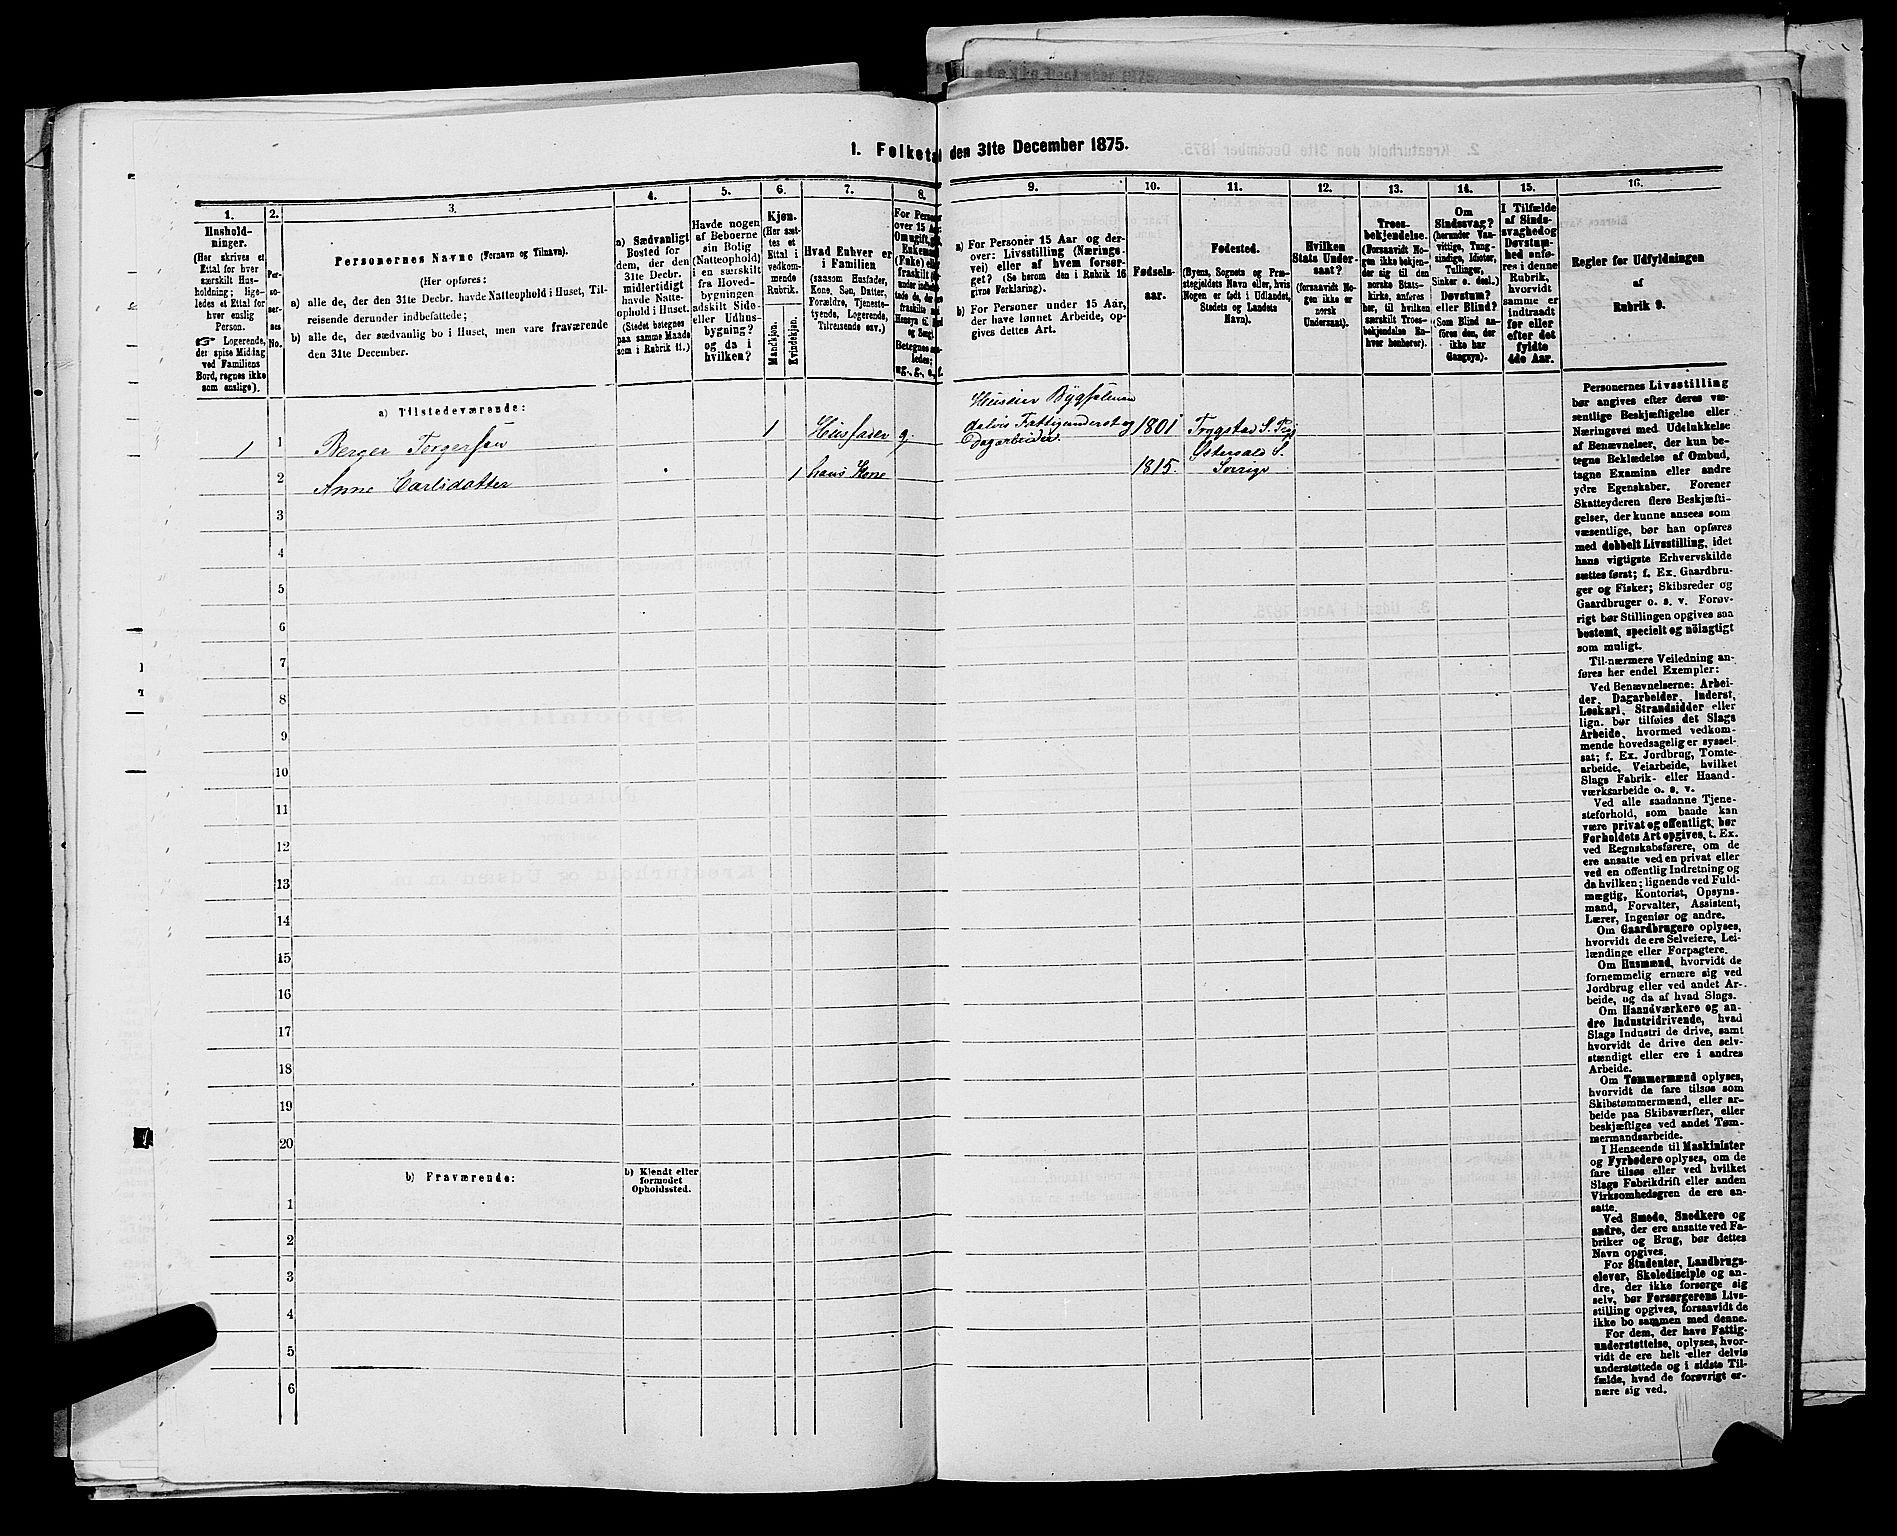 1. Folketal den 31te December 1875.
1.
2.
3.
4.
5.
6.
7.
8.
9.
10.
11.
12.
13.
14.
15.
16.
Hushold-
ninger.
(Her skrives et
Ettal for hver
særskilt Hus-
holdning; lige-
ledes et Ettal for
hver enslig
Person.
☞ Logerende,
der spise Middag
ved Familiens
Bord, regnes ikke
som enslige).
Per-
so-
ner-
nes
No.
Personernes Navne (Fornavn og Tilnavn).
(Her opføres:
a) alle de, der den 31te Decbr. havde Natteophold i Huset, Til-
reisende derunder indbefattede;
b) alle de, der sædvanlig bo i Huset, men vare fraværende
den 31te December.
a) Sædvanligt
Bosted for
dem, der den
31te Decbr.
midlertidigt
havde Natte-
ophold i Huset.
(Stedet betegnes
paa samme Maade
som i Rubrik 11.)
Havde nogen
af Beboerne
sin Bolig
(Natteophold)
i en særskilt
fra Hoved-
bygningen
adskilt Side-
eller Udhus-
bygning?
og da i
hvilken?
Kjøn.
(Her sæt-
tes et
Ettal i
vedkom-
mende
Rubrik.
Mandkjøn.
Kvindekjøn.
Hvad Enhver er
i Familien
(saasom Husfader,
Kone, Søn, Datter,
Forældre, Tjeneste-
tyende, Logerende,
Tilreisende osv.)
For
over 15 Aar
Om ugift, gift,
a) For Personer 15 Aar og der-
over: Livsstilling (Nærings-
vei) eller af hvem forsør-
get? (Se herom den i Rubrik 16
givne Forklaring).
b) For Personer under 15 Aar,
der have lønnet Arbeide, op-
gives dettes Art.
Fødsels-
aar.
Fødested.
(Byens, Sognets og Præ-
stegjeldets Navn eller, hvis
Nogen er født i Udlandet,
Stedets og Landets
Navn).
Hvilken
Stats Under-
saat?
(forsaavidt No-
gen ikke er
norsk
Undersaat).
Troes-
bekjendelse.
(Forsaavidt No-
gen ikke bekjen-
der sig til den
norske Stats-
kirke, anføres
her, til hvilken
særskilt Troes-
bekjendelse En-
hver henhører).
Om
Sindssvag?
(herunder Van-
vittige, Tung-
sindige, Idioter,
Tullinger,
Sinker o. desl.)
Døvstum?
eller Blind?
(Som Blind an-
føres den, der
ikke har
Gangsyn).
I Tilfælde
af Sinds-
svaghed og
Døvstum-
hed anfø-
res i denne
Rubrik,
hvorvidt
samme er
indtraadt
før eller
efter det
fyldte
4de Aar.
Regler for Udfyldningen
af
Rubrik 9.
a) Tilstedeværende:
1 1 Berger Torgersen 1 Husfader g. Huseier Bygselmand
delvis Fattigunderst og
Dagarbeider 1801 Trygstad S.
2 Anne Carlsdatter 1 hans Kone 1815 S.
Sverige
3
4
5
6
7
8
9
10
11
12
13
14
15
16
17
18
19
20
b) Fraværende:
b) Kjendt eller
formodet
Opholdssted.
1
2
3
4
5
6
Personernes Livsstilling
bør angives efter deres væ-
sentlige Beskjæftigelse eller
Næringsvei med Udelukkelse
af Benævnelser, der kun be-
tegne Beklædelse af Ombud,
tagne Examina eller andre
ydre Egenskaber. Forener
Skatteyderen flere Beskjæfti-
gelser, der kunne ansees som
væsentlige, bør han opføres
med dobbelt Livsstilling, idet
hans vigtigste Erhvervskilde
sættes først; f. Ex. Gaardbru-
ger og Fisker; Skibsreder og
Gaardbruger o. s. v. Forøv-
rigt bør Stillingen opgives saa
bestemt, specielt og nöiagtigt
som muligt.
Til nærmere Veiledning an-
føres her endel Exempler:
Ved Benævnelserne: Arbei-
der, Dagarbeider, Inderst,
Løskarl, Strandsidder eller
lign. bør tilføies det Slags
Arbeide, hvormed vedkom-
mende hovedsagelig er syssel-
sat; f. Ex. Jordbrug, Tomte-
arbeide, Veiarbeide, hvilket
Slags Fabrik- eller Haand-
værksarbeide o. s. v.
Ved alle saadanne Tjene-
steforhold, som baade kan
være privat og offentligt, bør
Forholdets Art opgives, t. Ex.
ved Regnskabsførere, om de
ere ansatte ved en privat eller
ved en offentlig Indretning og
da hvilken; lignende ved Fuld-
mægtig, Kontorist, Opsyns-
mand, Forvalter, Assistent,
Lærer, Ingeniør og andre.
Om Gaardbrugere oplyses,
hvorvidt de ere Selveiere, Lei-
lændinge eller Forpagtere.
Om Husmænd, hvorvidt de
fornemmelig ernære sig ved
Jordbrug eller ved andet Ar-
beide, og da af hvad Slags.
Om Haandværkere og an-
dre Industridrivende, hvad
Slags Industri de drive, samt
hvorvidt de drive den selv-
stændigt eller ere i andres
Arbeide.
Om Tømmermænd oplyses,
hvorvidt de fare tilsøs som
Skibstømmermænd, eller ar-
beide paa Skibsværfter, eller
beskjæftiges ved andet Tøm-
mermandsarbeide.
I Henseende til Maskinister
og Fyrbødere oplyses, om de
fare tilsøs eller ved hvilket
Slags Fabrikdrift eller anden
Virksomhedsgren de ere an-
satte.
Ved Smede, Snedkere og
andre, der ere ansatte ved Fa-
briker og Brug, bør dettes
Navn opgives.
For Studenter, Landbrugs-
elever, Skoledisciple og an-
dre, der ikke forsørge sig
selv, bør Forsørgerens Livs-
stilling opgives, forsaavidt de
ikke bo sammen med denne.
For dem, der have Fattig-
understøttelse, oplyses, hvor-
vidt de ere helt eller delvis
understøttede og i sidste Til-
fælde, hvad de forøvrigt er-
nære sig ved.